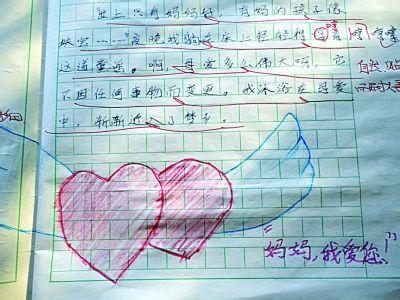 世上只有妈妈好，有妈的孩子像
块宝……"夜晚我躺在床上轻轻得哼
这道童谣。啊，母爱多么伟大啊，它 自然
不因任何事物而变更。我沐浴在母爱
中，渐渐进入了梦乡。
细
"妈妈，我爱您！"